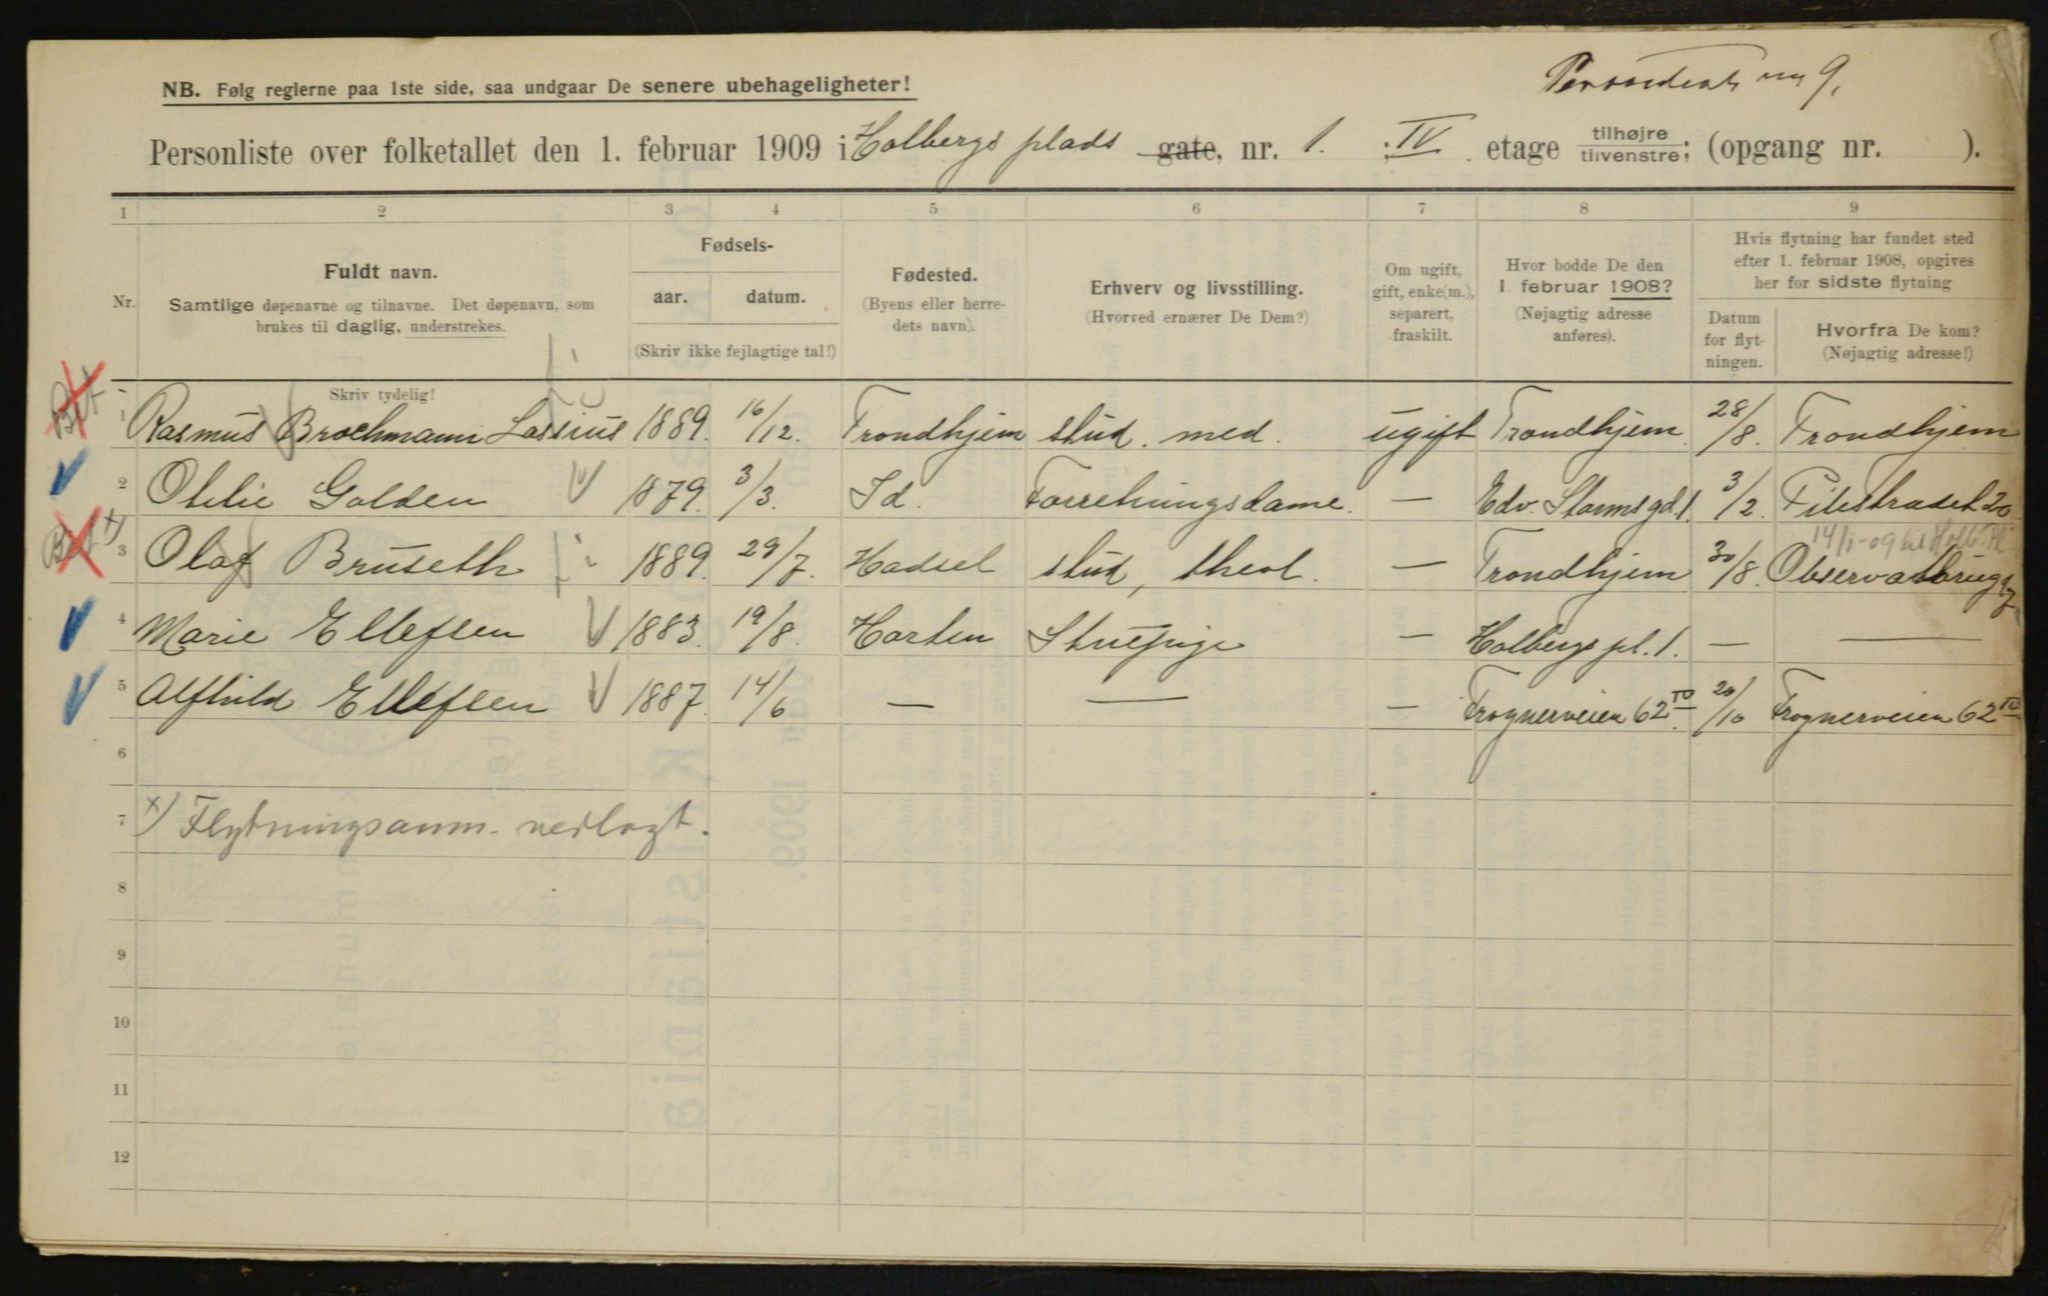 nr 9.
NB. Følg reglerne paa 1ste side, saa undgaar De senere ubehageligheter!
Personliste over folketallet den 1. februar 1909 i Holbergs plads gate, nr. 1. : IV etage tilhøjre tilvenstre; (opgang nr. ).
1 2 3 4 5 6 7 8 9
Nr.
Fuldt navn.
Samtlige døpenavne og tilnavne. Det døpenavn, som
brukes til daglig, understrekes.
Skriv tydelig!
Fødsels-
aar. datum.
(Skriv ikke fejlagtige tal!)
Fødested.
(Byens eller herre-
dets navn).
Erhverv og livsstilling.
(Hvorved ernærer De Dem?)
Om ugift,
gift, enke(m.),
separert,
fraskilt.
Hvor bodde De den
1 februar 1908?
(Nøjagtig adresse
anføres).
Hvis flytning har fundet sted
efter 1. februar 1908, opgives
her for sidste flytning
Datum
for flyt-
ningen.
Hvorfra De kom?
(Nøjagtig adresse!)
1 Rasmus Brochmann Lossius 1889. 16/12. Trondhjem stud. med. ugift Trondhjem. 28/8. Trondhjem
2 Golden 1879. 3/3. Id. Forretningsdame. — Edv. Stormsgd. 1. 3/2. Pilestrædet 20
14/1-09 til Holb. Pl.
3 Olaf Bruseth 1889. 29/7. Hadsel stud, theol. — Trondhjem 30/8. 
4 Marie Ellefsen 1883. 19/8. Horten — Holbergs pl. 1. — —
5 Alfhild Ellefsen 1887. 14/6 — — — Frognerveien 62 IV. 20/10 Frognerveien 62 IV
6
7 x) Flytningsanm. vedlagt.
8
9
10
11
12